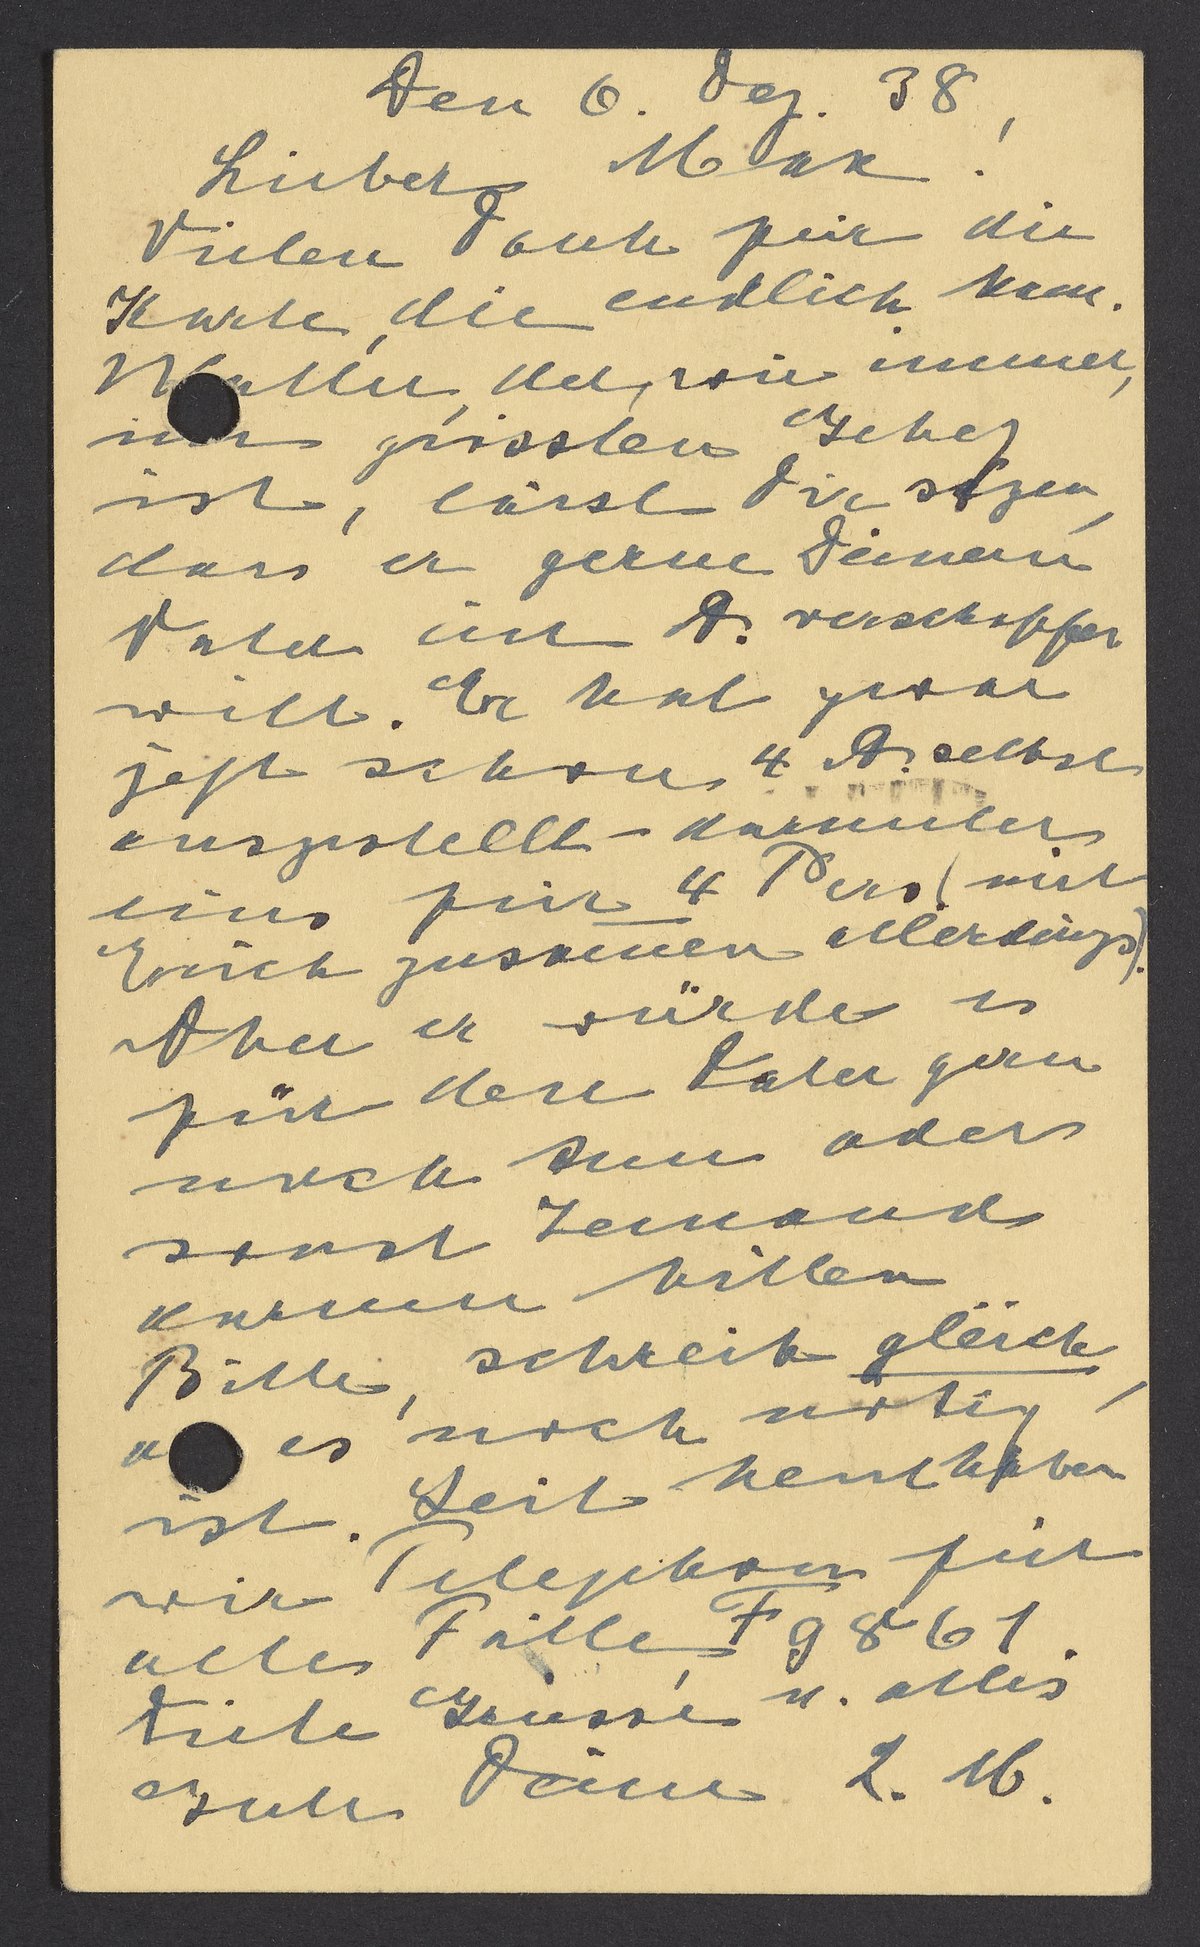 Den 6. Dez. 38,
Lieber Max!
Vielen Dank für die
Karte, die endlich kam.
Walter, der, wie immer,
im grössten Gehez
ist, lässt Dir sagen,
dass er gerne Deinem
Vater ein A. verschaffen
will. Er hat zwar
jetzt schon 4 A. selbst
ausgestellt - darunter
eins für 4 Pers (mit
Erich zusammen allerdings).
Aber er würde es
für den Vater gern
noch tun oder
sonst Jemand
darum bitten
Bitte, schreib gleich,
ob es noch nötig
ist. Seit heut haben
wir Telephon für
alle Fälle, F 9861.
Viele Grüsse u. alles
Gute Deine L. M.